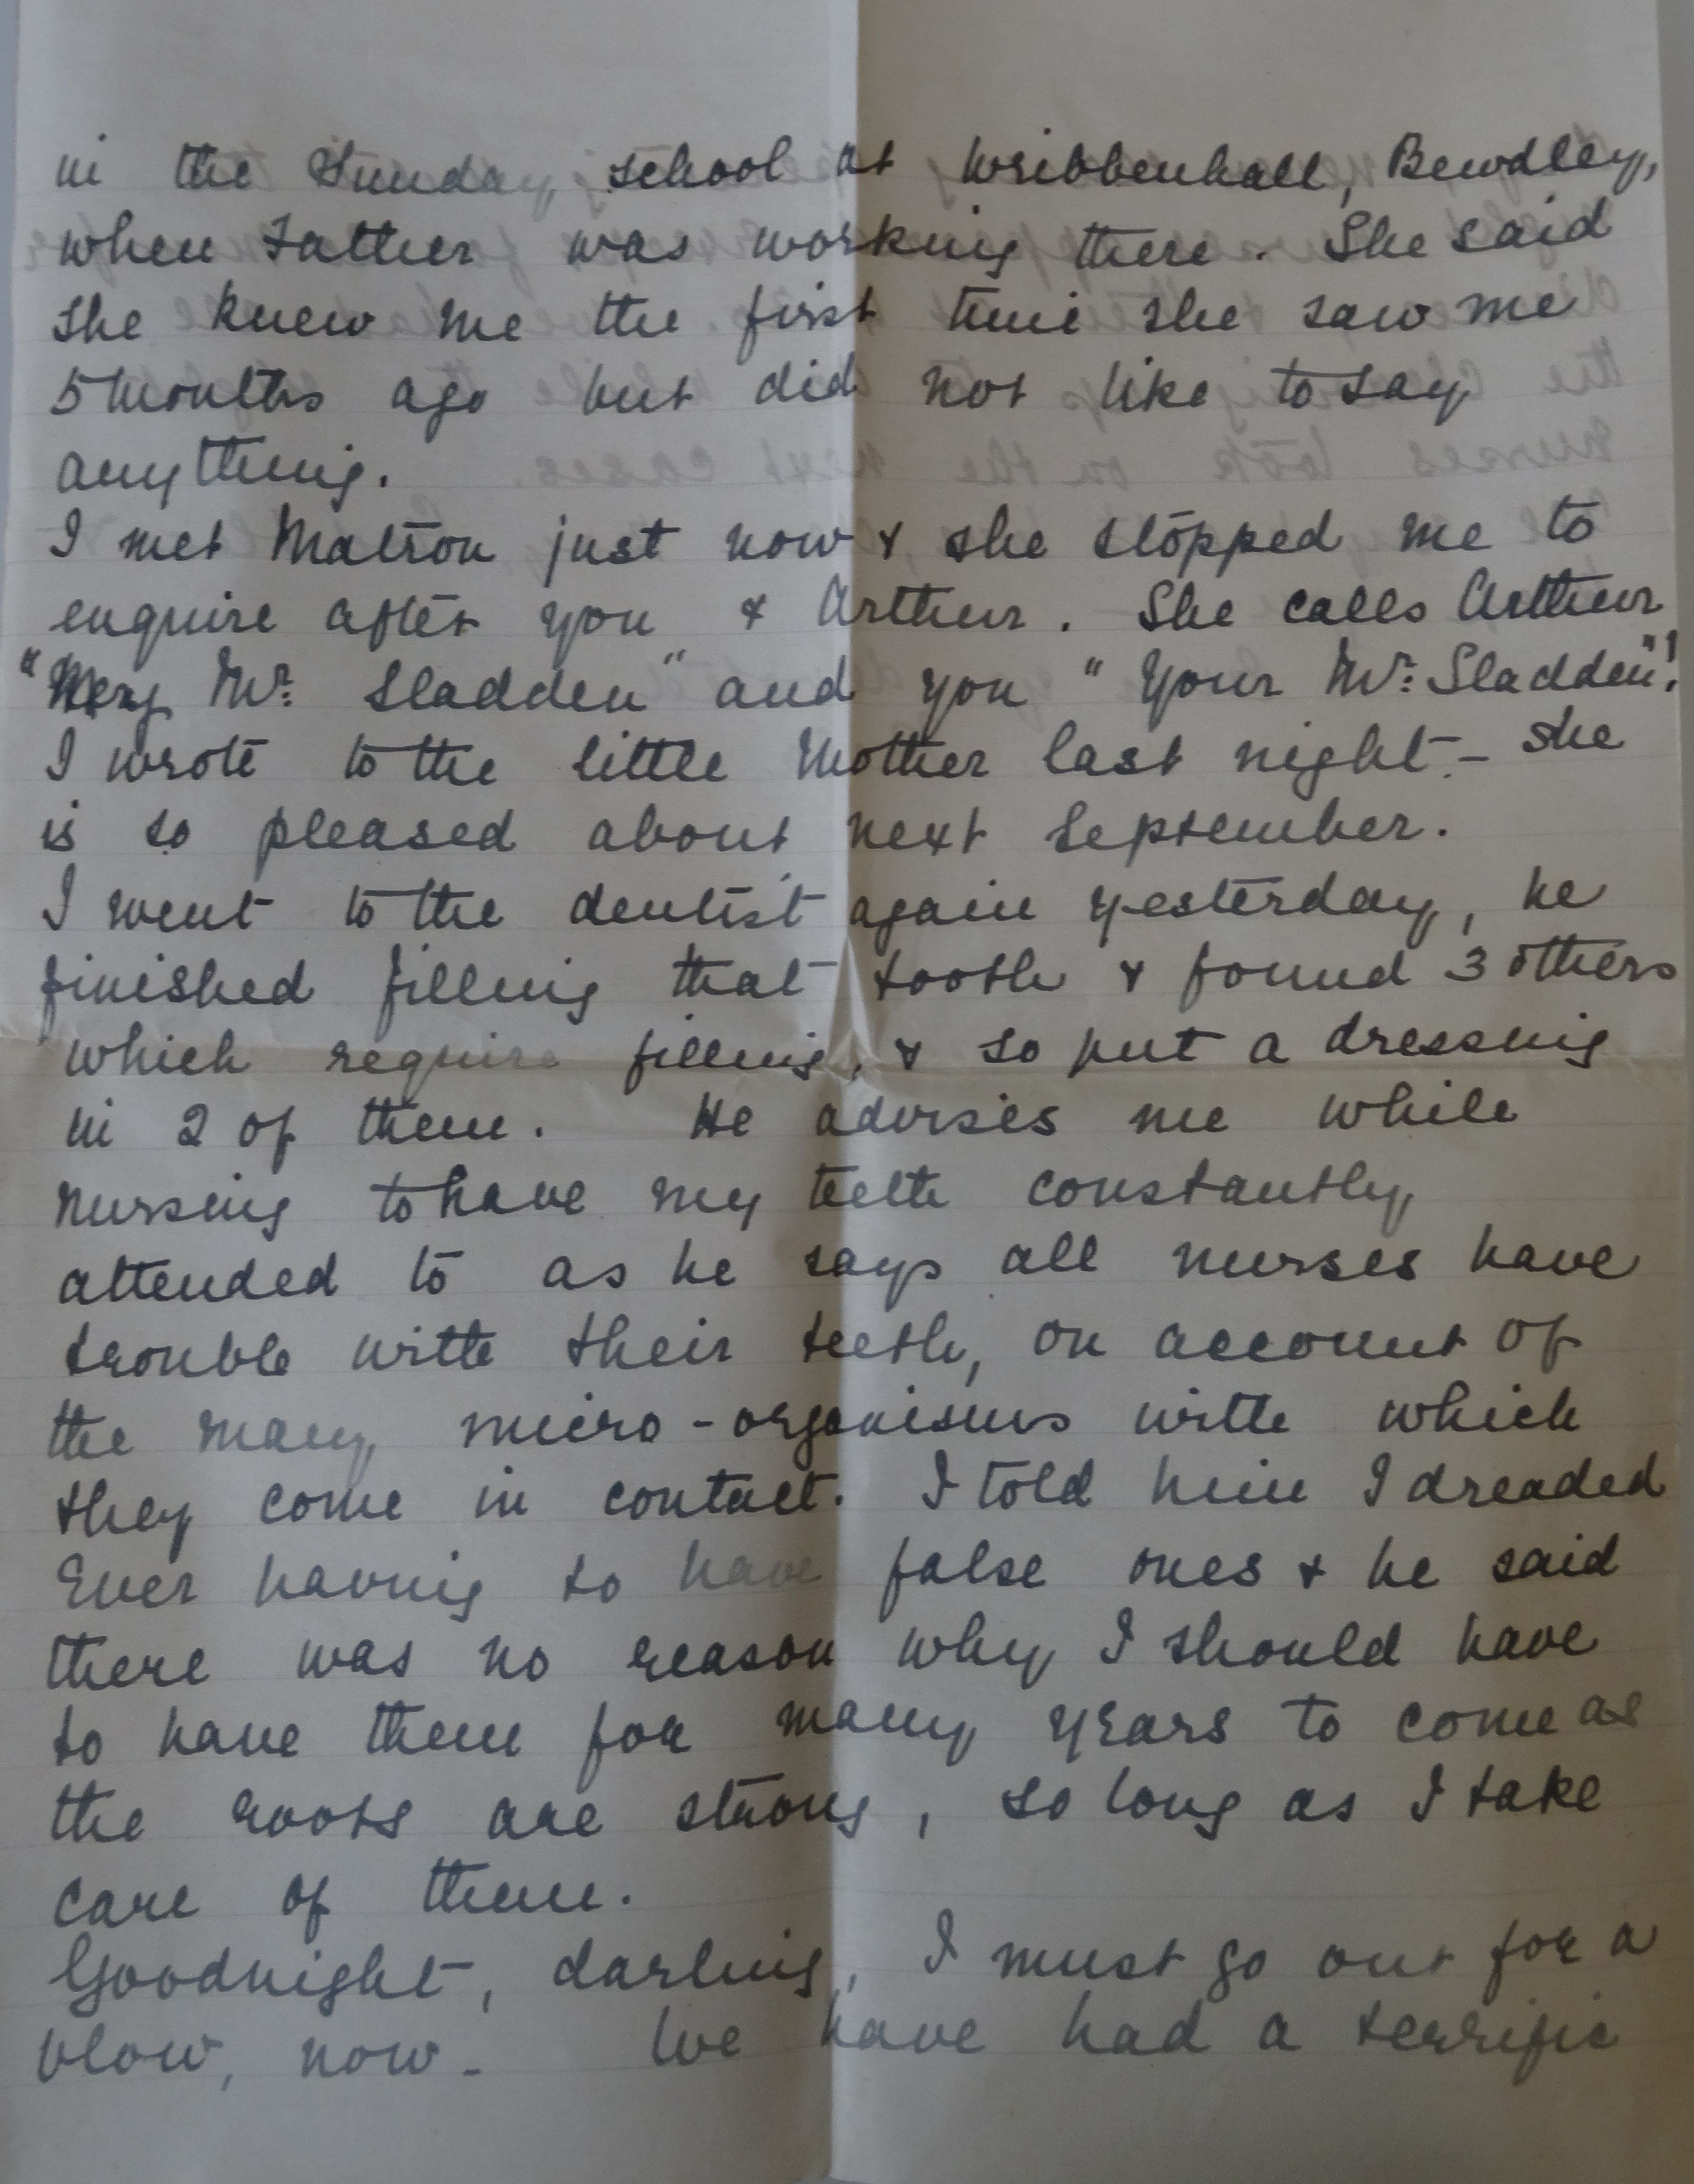 in the Sunday school at Wribbenhall, Bewdley,
when Father was working there. She said
she knew me the first time she saw me
5 months ago but did not like to say
anything.
I met Matron just now & she stopped me to
enquire after you & Arthur. She calls Arthur
" Mr. Sladden" and you "Your Mr. Sladden"!
I wrote to the little Mother last night - she
is so pleased about next September.
I went to the dentist again yesterday, he
finished filling that tooth & found 3 others
which require filling, & so put a dressing
in 2 of them. He advises me while
nursing to have my teeth constantly
attended to as he says all nurses have
trouble with their teeth, on account of
the many micro-organisms with which
they come in contact. I told him I dreaded
Ever having to have false ones & he said
there was no reason why I should have
to have them for many years to come as
the roots are strong, so long as I take
care of them.
Goodnight, darling, I must go out for a
blow, now - We have had a terrific